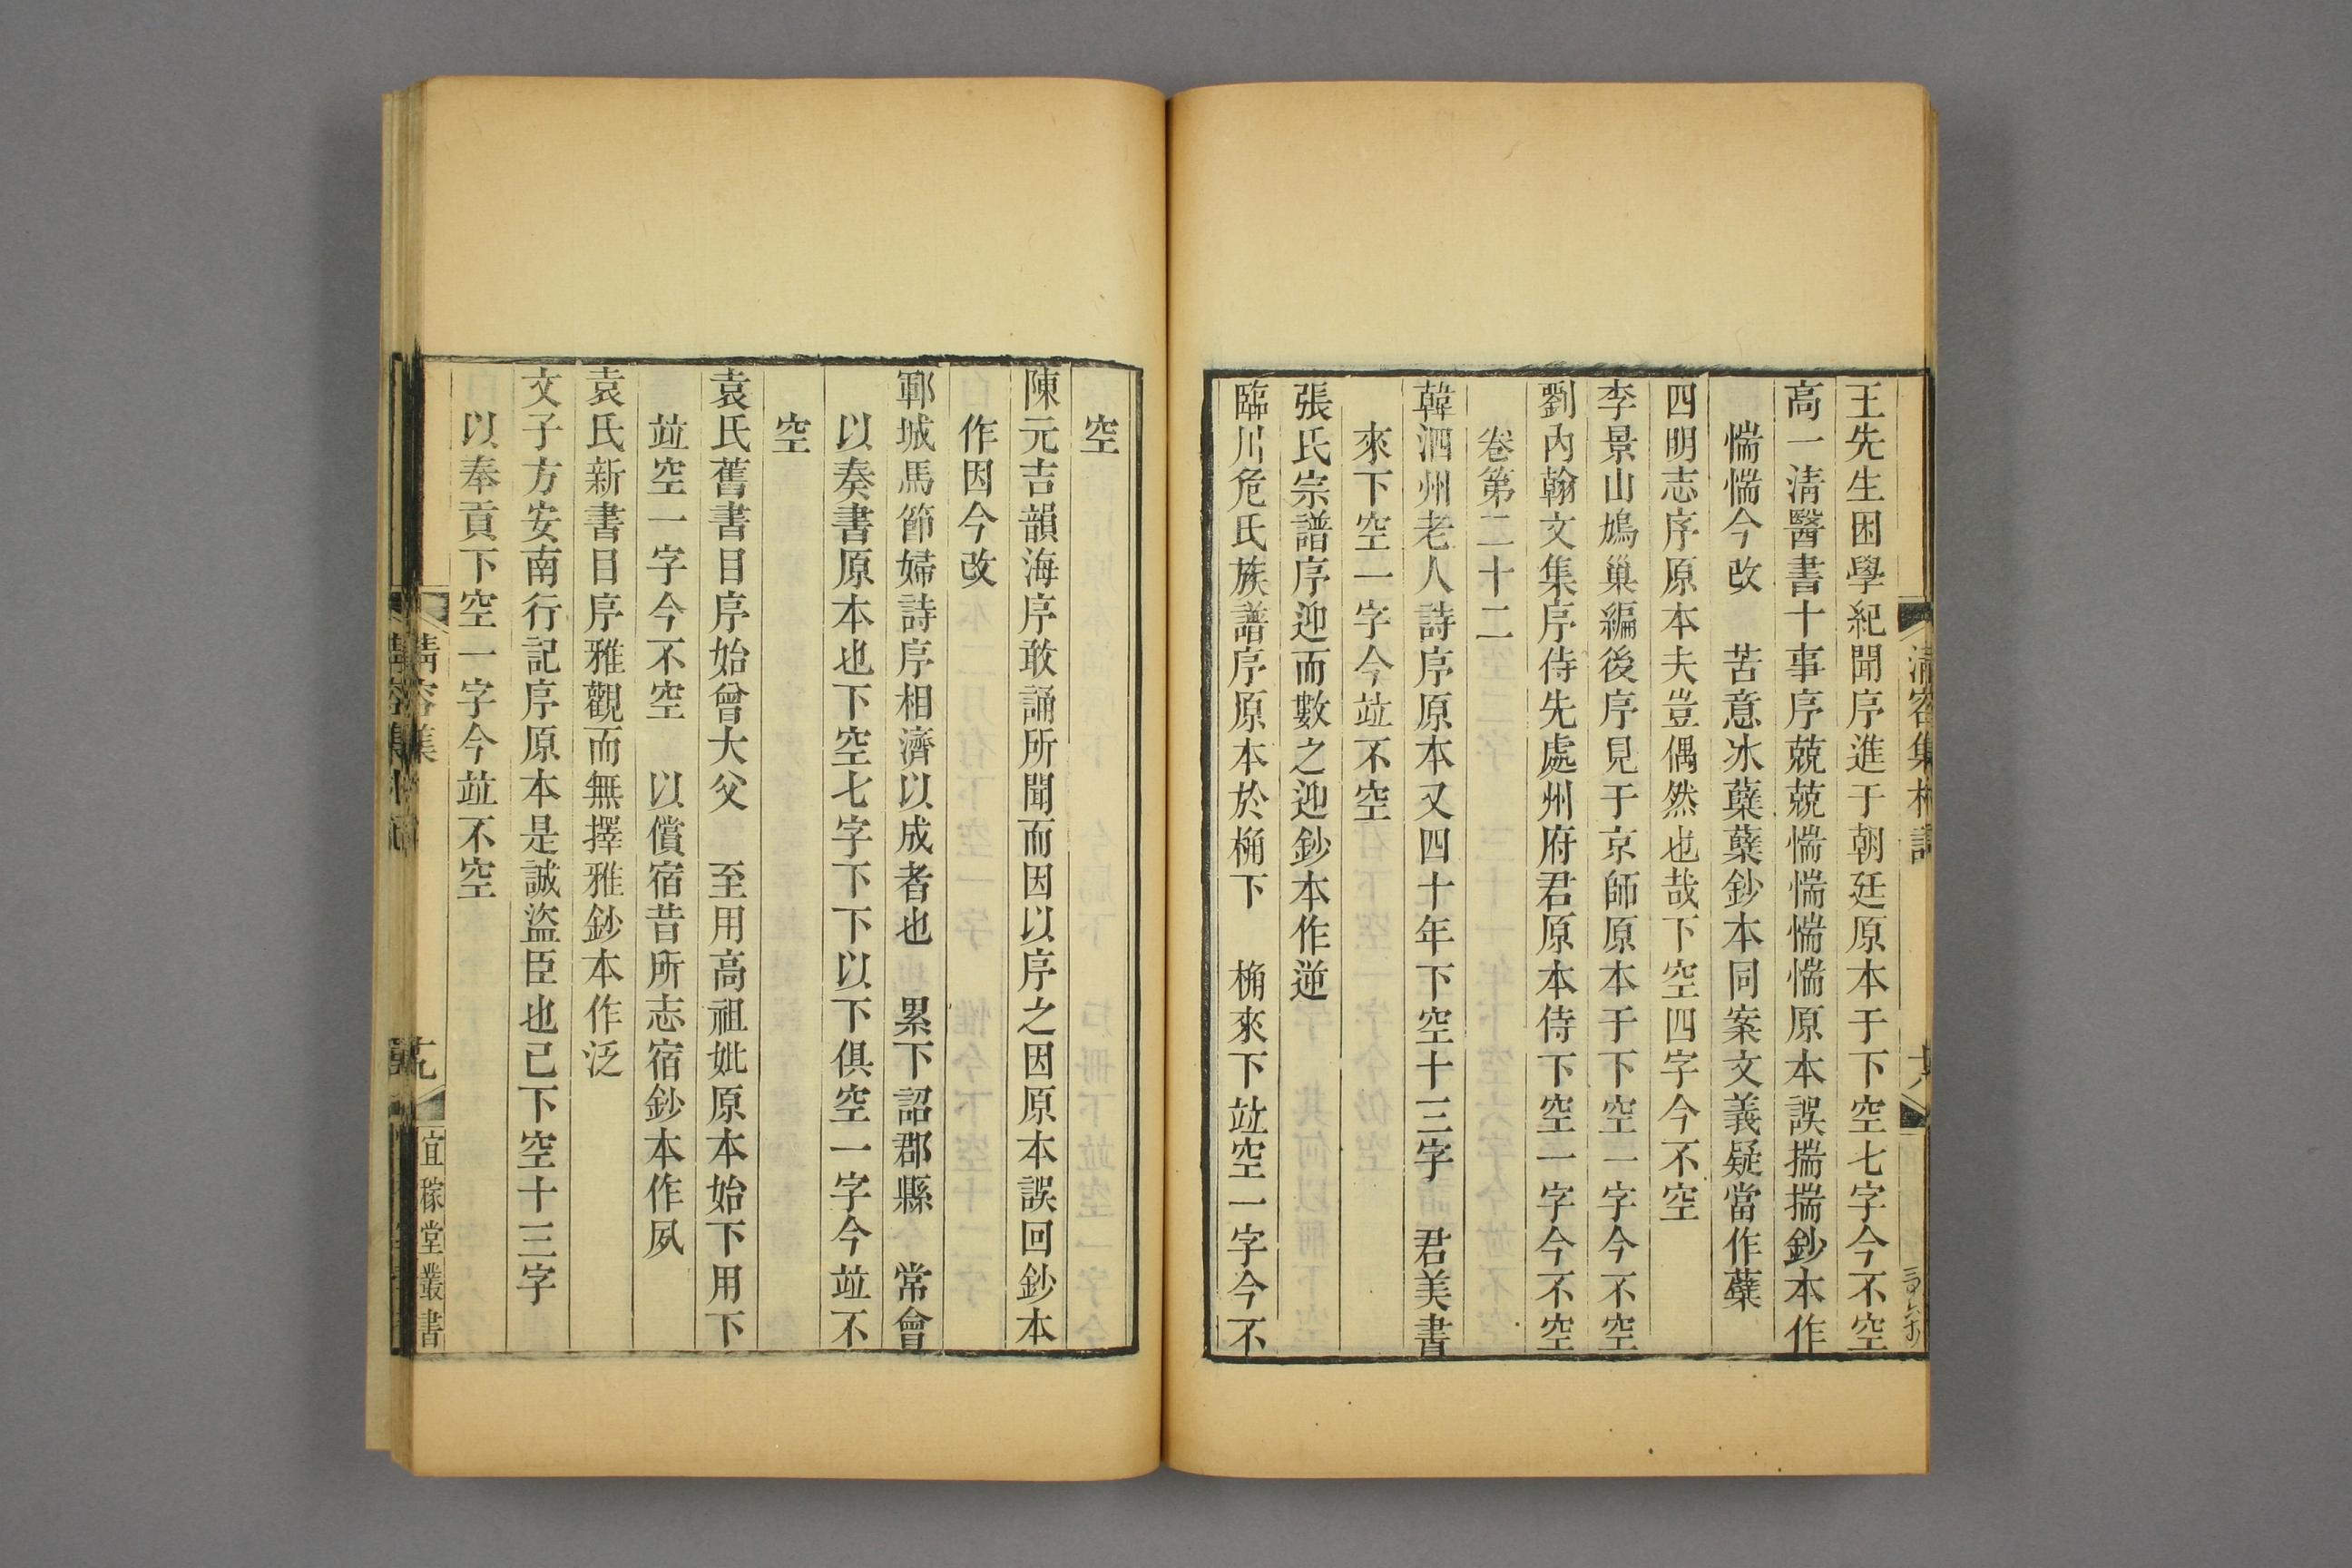 王先生困學紀聞序進于朝廷原本于下空七字今不空
高一清醫書十事序兢兢惴惴惴惴原本誤揣揣鈔本作
惴惴今改　苦意冰蘖蘖鈔本同案文義疑當作蘗
四明志序原本夫豈偶然也哉下空四字今不空
李景山鳩巢編後序見于京師原本于下空一字今不空
劉內翰文集序侍先處州府君原本侍下空一字今不空
卷第二十二
韓泗州老人詩序原本又四十年下空十三字　君美書
來下空一字今竝不空
張氏宗譜序迎而數之迎鈔本作逆
臨川危氏族譜序原本於桷下　桷來下竝空一字今不
空
陳元吉韻海序敢誦所聞而因以序之因原本誤回鈔本
作因今改
鄆城馬節婦詩序相濟以成者也　累下詔郡縣　常會
以奏書原本也下空七字下下以下俱空一字今竝不
空
袁氏舊書目序始曾大父　至用高祖妣原本始下用下
竝空一字今不空　以償宿昔所志宿鈔本作夙
袁氏新書目序雅觀而無擇雅鈔本作泛
文子方安南行記序原本是誠盜臣也已下空十三字
以奉貢下空一字今竝不空
清容集
宜稼堂叢書